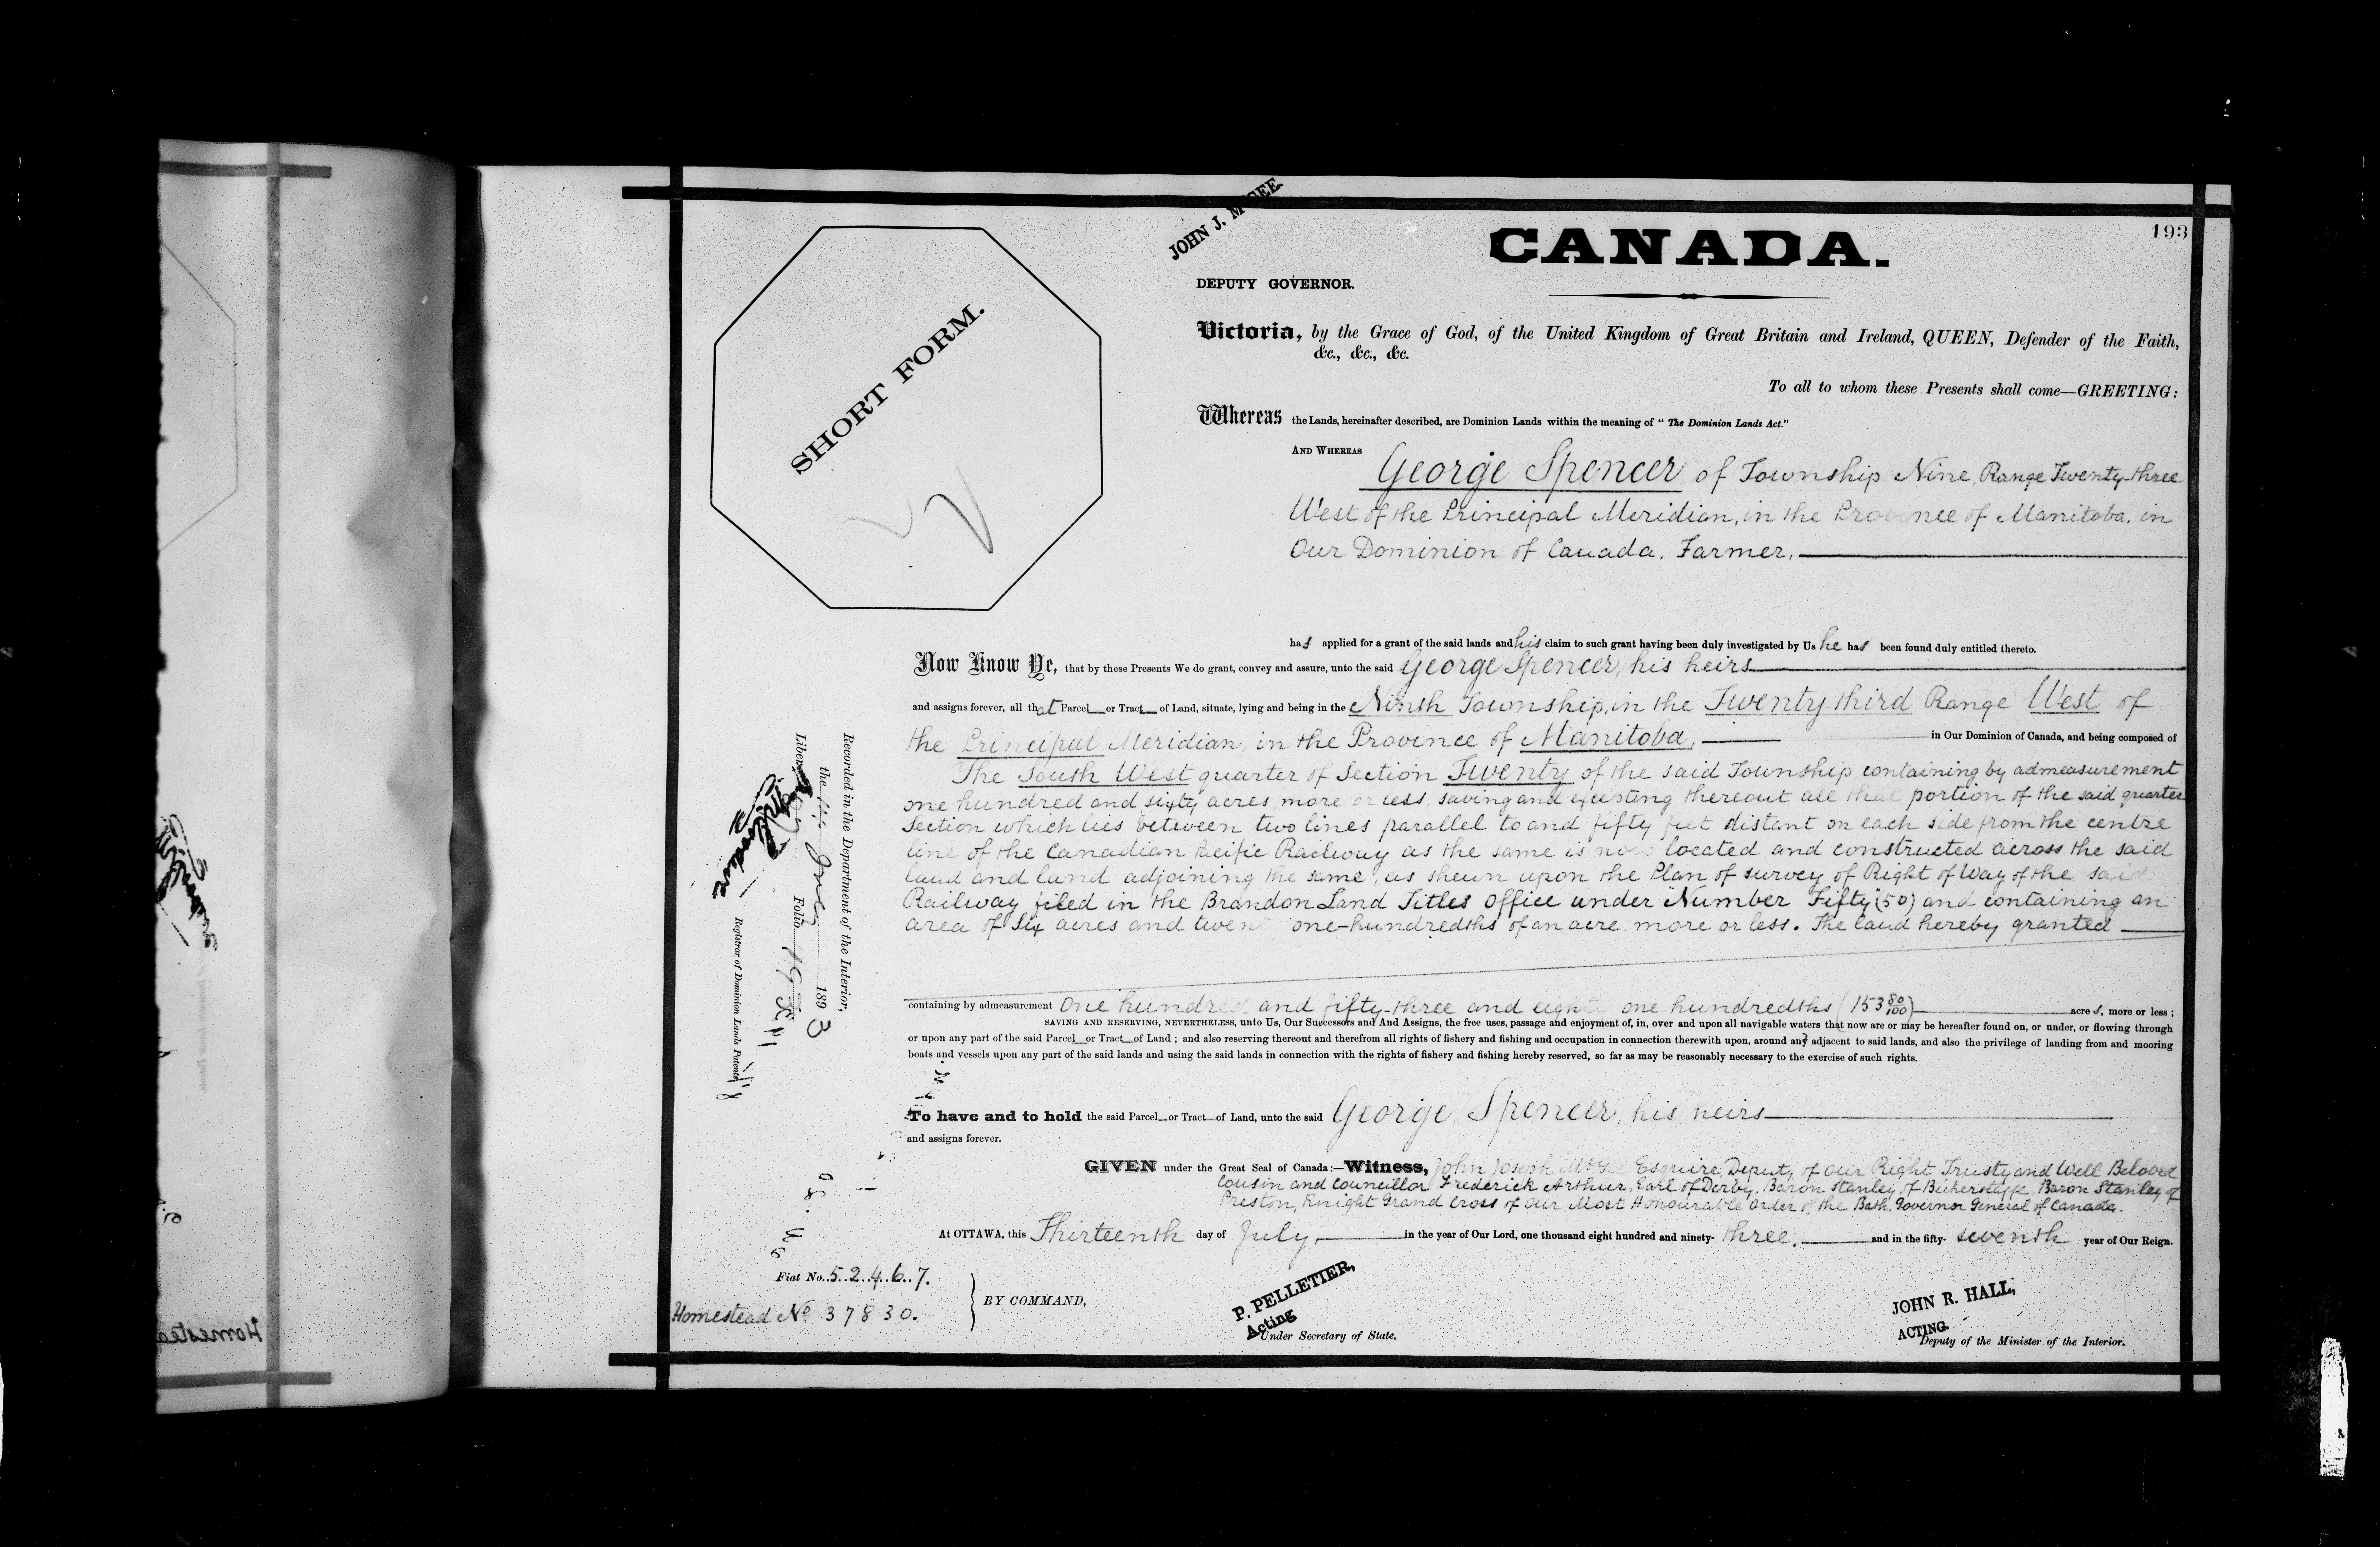 193
JOHN J. McGEE.
CANADA.
DEPUTY GOVERNOR.
SHORT FORM.
Victoria, by the Grace of God, of the United Kingdom of Great Britain and Ireland, QUEEN, Defender of the Faith,
&c., &c., &c.
To all to whom these Presents shall come—GREETING:
Whereas the Lands, hereinafter described, are Dominion Lands within the meaning of "The Dominion Lands Act."
AND WHEREAS George Spencer of Township Nine, Range Twenty-three
West of the Principal Meridian, in the Province of Manitoba, in
Our Dominion of Canada, Farmer,
has applied for a grant of the said lands and his claim to such grant having been duly investigated by Us he has been found duly entitled thereto.
Now Know Ye, that by these Presents We do grant, convey and assure, unto the said George Spencer, his heirs
and assigns forever, all that Parcel or Tract of Land, situate, lying and being in the Ninth Township, in the Twenty third Range West of
the Principal Meridian, in the Province of Manitoba, in Our Dominion of Canada, and being composed of
The South West quarter of Section Twenty of the said Township containing by admeasurement
one hundred and sixty acres, more or less, saving and excepting thereout all that portion of the said quarter
Section which lies between two lines parallel to and fifty feet distant on each side from the centre
line of the Canadian Pacific Railway as the same is now located and constructed across the said
land and land adjoining the same, as shewn upon the Plan of survey of Right of Way of the said
Railway filed in the Brandon Land Titles Office under Number Fifty (50) and containing an
area of Six acres and twenty one-hundredths of an acre, more or less. The land hereby granted
containing by admeasurement One hundred and fifty-three and eighty one hundredths (153 80/100) acres, more or less;
SAVING AND RESERVING, NEVERTHELESS, unto Us, Our Successors and And Assigns, the free uses, passage and enjoyment of, in, over and upon all navigable waters that now are or may be hereafter found on, or under, or flowing through
or upon any part of the said Parcel or Tract of Land; and also reserving thereout and therefrom all rights of fishery and fishing and occupation in connection therewith upon, around and adjacent to said lands, and also the privilege of landing from and mooring
boats and vessels upon any part of the said lands and using the said lands in connection with the rights of fishery and fishing hereby reserved, so far as may be reasonably necessary to the exercise of such rights.
To have and to hold the said Parcel or Tract of Land, unto the said George Spencer, his heirs
and assigns forever.
GIVEN under the Great Seal of Canada:—Witness, John Joseph McGee Esquire, Deputy of our Right Trusty and Well Beloved
Cousin and Councillor Frederick Arthur, Earl of Derby, Baron Stanley of Bickerstaffe, Baron Stanley of
Preston, Knight Grand Cross of Our Most Honourable Order of the Bath, Governor General of Canada.
At OTTAWA, this Thirteenth day of July, in the year of Our Lord, one thousand eight hundred and ninety-three, and in the fifty-seventh year of Our Reign.
Fiat No. 52467.
Homestead No 37830.
BY COMMAND,
P. PELLETIER,
Acting
Under Secretary of State.
JOHN R. HALL,
ACTING.
Deputy of the Minister of the Interior.
Recorded in the Department of the Interior,
the July 1893
Liber Folio 193
Registrar of Dominion Lands Patents
Homestea